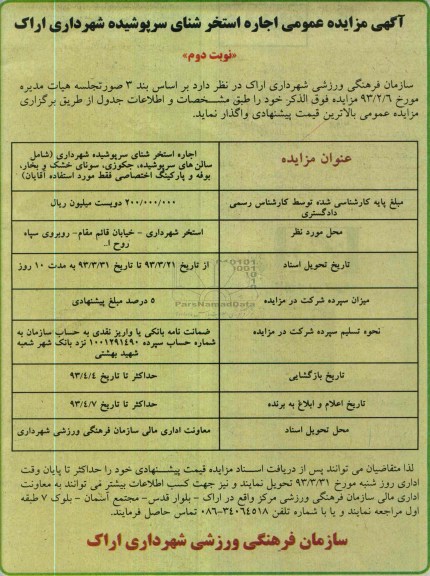 آگهی مزایده عمومی اجاره استخر شنای سرپوشیده شهرداری اراک
«نوبت دوم»
سازمان فرهنگی ورزشی شهرداری اراک در نظر دارد بر اساس بند ۳ صورتجلسه هیات مدیره
مورخ ۹۳/۲/۶ مزایده فوق الذکر خود را طبق مشخصات و اطلاعات جدول از طریق برگزاری
مزایده عمومی بالاترین قیمت پیشنهادی واگذار نماید.
عنوان مزایده
اجاره استخر شنای سرپوشیده شهرداری (شامل
سالن های سرپوشیده، جکوزی، سونای خشک و بخار،
بوفه و پارکینگ اختصاصی فقط مورد استفاده آقایان)
مبلغ پایه کارشناسی شده توسط کارشناس رسمی
دادگستری
۲۰۰/۰۰۰/۰۰۰ دویست میلیون ریال
محل مورد نظر
استخر شهرداری - خیابان قائم مقام- روبروی سپاه
روح ا..
تاریخ تحویل اسناد
از تاریخ ۹۳/۳/۲۱ تا تاریخ ۹۳/۳/۳۱ به مدت ۱۰ روز
میزان سپرده شرکت در مزایده
۵ درصد مبلغ پیشنهادی
نحوه تسلیم سپرده شرکت در مزایده
ضمانت نامه بانکی یا واریز نقدی به حساب سازمان به
شماره حساب سپرده ۱۰۰۱۲۹۱۴۹۰ نزد بانک شهر شعبه
شهید بهشتی
تاریخ بازگشایی
حداکثر تا تاریخ ۹۳/۴/۴
تاریخ اعلام و ابلاغ به برنده
حداکثر تا تاریخ ۹۳/۴/۷
محل تحویل اسناد
معاونت اداری مالی سازمان فرهنگی ورزشی شهرداری
ParsNamadData
لذا متقاضیان می توانند پس از دریافت اسناد مزایده قیمت پیشنهادی خود را حداکثر تا پایان وقت
اداری روز شنبه مورخ ۹۳/۳/۳۱ تحویل نمایند و نیز جهت کسب اطلاعات بیشتر می توانند به معاونت
اداری مالی سازمان فرهنگی ورزشی مرکز واقع در اراک - بلوار قدس- مجتمع آسمان - بلوک ۷ طبقه
اول مراجعه نمایند و یا با شماره تلفن ۳۴۰۶۴۵۱۸-۰۸۶ تماس حاصل فرمایند.
سازمان فرهنگی ورزشی شهرداری اراک